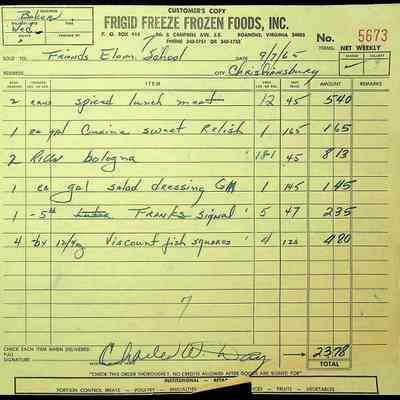 CUSTOMER'S COPY
Baker
Wed
FRIGID FREEZE FROZEN FOODS, INC.
P. O. BOX 914 5th & CAMPBELL AVE., S.E. ROANOKE, VIRGINIA 24005
PHONE 342-1751 OR 342-1752
No. 5673
TERMS: NET WEEKLY
SOLD TO: Friends Elem. School DATE 9/7/65
ADDRESS CITY Christiansburg
ITEM AMOUNT REMARKS
2 cans spiced lunch meat 12 45 540
1 ea gal Cuzina sweet Relish 1 165 165
2 bologna 181 45 813
1 ea gal salad dressing GM 1 145 145
1 - 5# Franks signal 5 47 235
4 bx 12/4oz Viscount fish squares 4 120 480
7
CHECK EACH ITEM WHEN DELIVERED
FULL
SIGNATURE Charles W. Way 2378
TOTAL
"CHECK THIS ORDER THOROUGHLY, NO CREDITS ALLOWED AFTER GOODS ARE SIGNED FOR"
INSTITUTIONAL - RETAIL
PORTION CONTROL MEATS - POULTRY - SPECIALTIES - JUICES - FRUITS - VEGETABLES